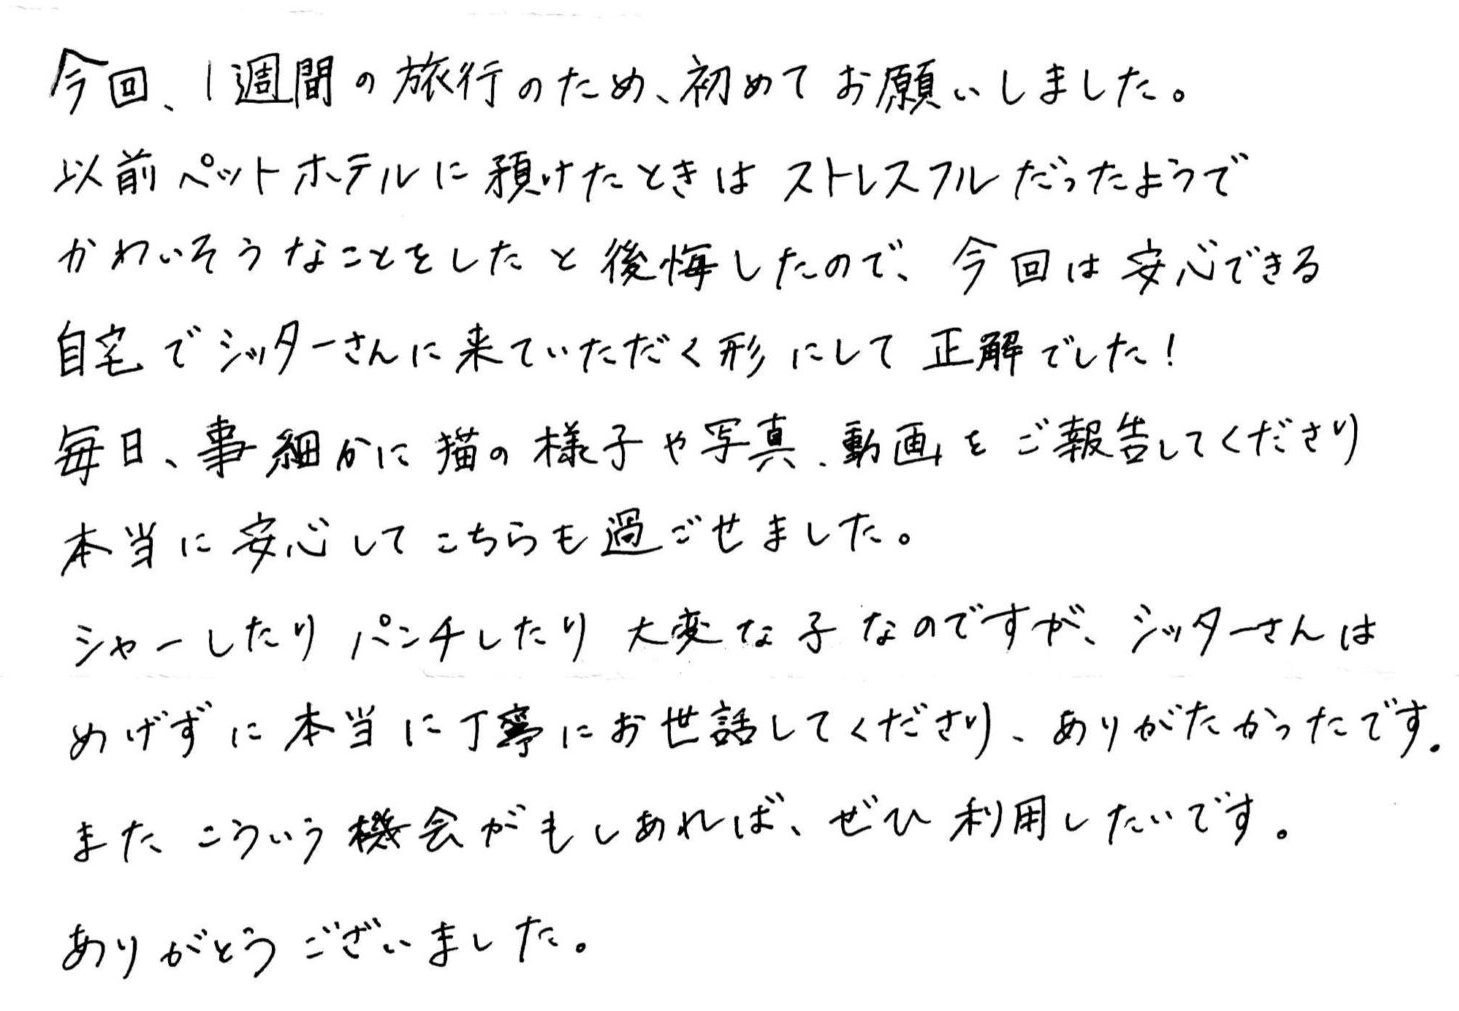 今回、1週間の旅行のため、初めてお願いしました。
以前ペットホテルに預けたときはストレスフルだったようで
かわいそうなことをしたと後悔したので、今回は安心できる
自宅でシッターさんに来ていただく形にして正解でした!
毎日、事細かに猫の様子や写真、動画をご報告してくださり
本当に安心してこちらも過ごせました。
シャーしたりパンチしたり大変な子なのですが、シッターさんは
めげずに本当に丁寧にお世話してくださり、ありがたかったです。
またこういう機会がもしあれば、ぜひ利用したいです。
ありがとうございました。